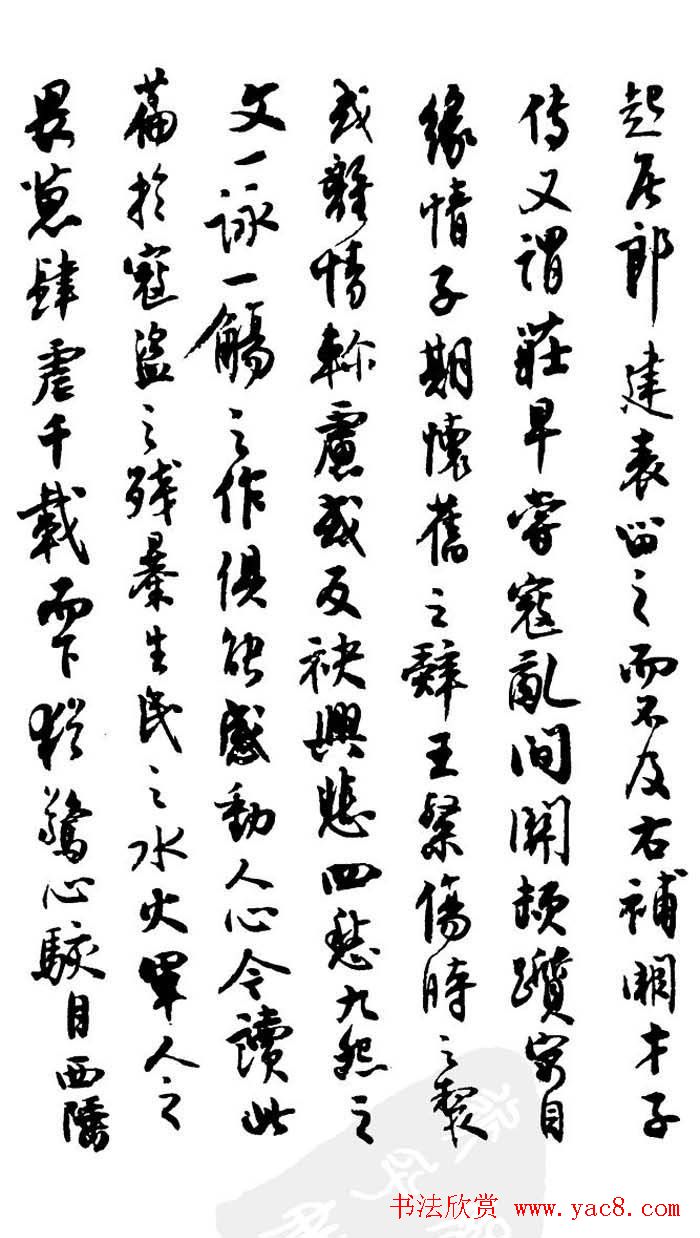 起居郎建表留之而不及右補闕才子
傳又謂莊早嘗寇亂間關頓躓寓目
緣情子期懷舊之辭王粲傷時之製
或離情軫慮或反袂興悲四愁九怨之
文一詠一觴之作俱能感動人心今讀此
篇於寇盜之殘暴生民之水火軍人之
畏葸肆虐千載而下猶驚心駭目西陽
书法欣赏 www.yac8.com